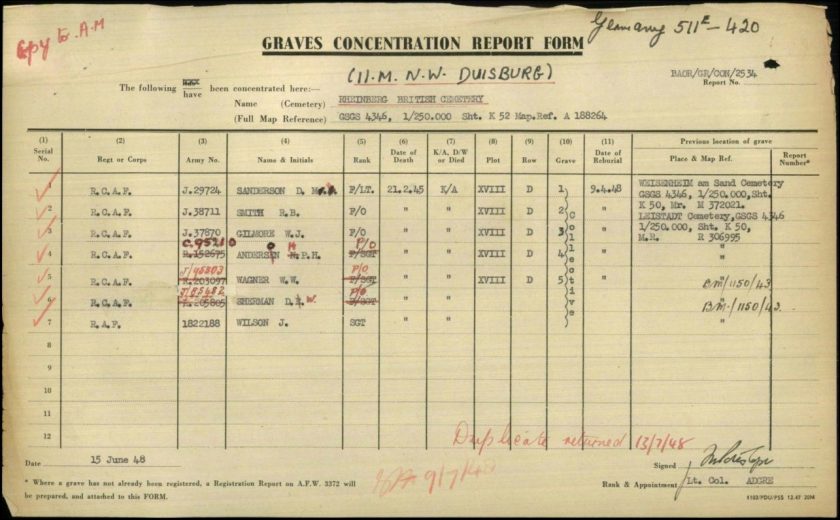 Copy to A.M
Germany 511E - 420
GRAVES CONCENTRATION REPORT FORM
(11.M. N.W. DUISBURG)
BAOR/GR/CON/2534
Report No.
The following have been concentrated here:—
Name (Cemetery) RHEINBERG BRITISH CEMETERY
(Full Map Reference) GSGS 4346, 1/250.000 Sht. K 52 Map.Ref. A 188264
(1) Serial No. (2) Regt or Corps (3) Army No. (4) Name & Initials (5) Rank (6) Date of Death (7) K/A, D/W or Died (8) Plot (9) Row (10) Grave (11) Date of Reburial Previous location of grave Place & Map Ref. Report Number*
1 R.C.A.F. J.29724 SANDERSON D. F/LT. 21.2.45 K/A XVIII D 1 9.4.48 WEISENHEIM am Sand Cemetery
GSGS 4346, 1/250,000,Sht.
K 50, Mr. M 372021.
2 R.C.A.F. J.38711 SMITH R.B. F/O " " XVIII D 2 " LEISTADT Cemetery,GSGS 4346
3 R.C.A.F. J.37870 GILMORE W.J. F/O " " XVIII D 3 " 1/250.000, Sht. K 50,
M.R. R 306995
C.95210 O H P/O
4 R.C.A.F. R.152675 ANDERSEN N.P.H. F/SGT " " XVIII D 4 " "
J/95803 P/O
5 R.C.A.F. R.203097 WAGNER W.W. F/SGT " " XVIII D 5 " " BM/1150/43
J/95482 P/O
6 R.C.A.F. R.205805 SHERMAN D. W. F/SGT " " " BM/1150/43.
7 R.A.F. 1822188 WILSON J. SGT " " " "
Collective
8
9
10
11
12
Duplicate returned 13/7/48
Date 15 June 48
Signed
9/7/48
* Where a grave has not already been registered, a Registration Report on A.F.W. 3372 will
be prepared, and attached to this FORM.
Rank & Appointment Lt. Col. ADGRE
4103/PDU/PSS 12.47 20M